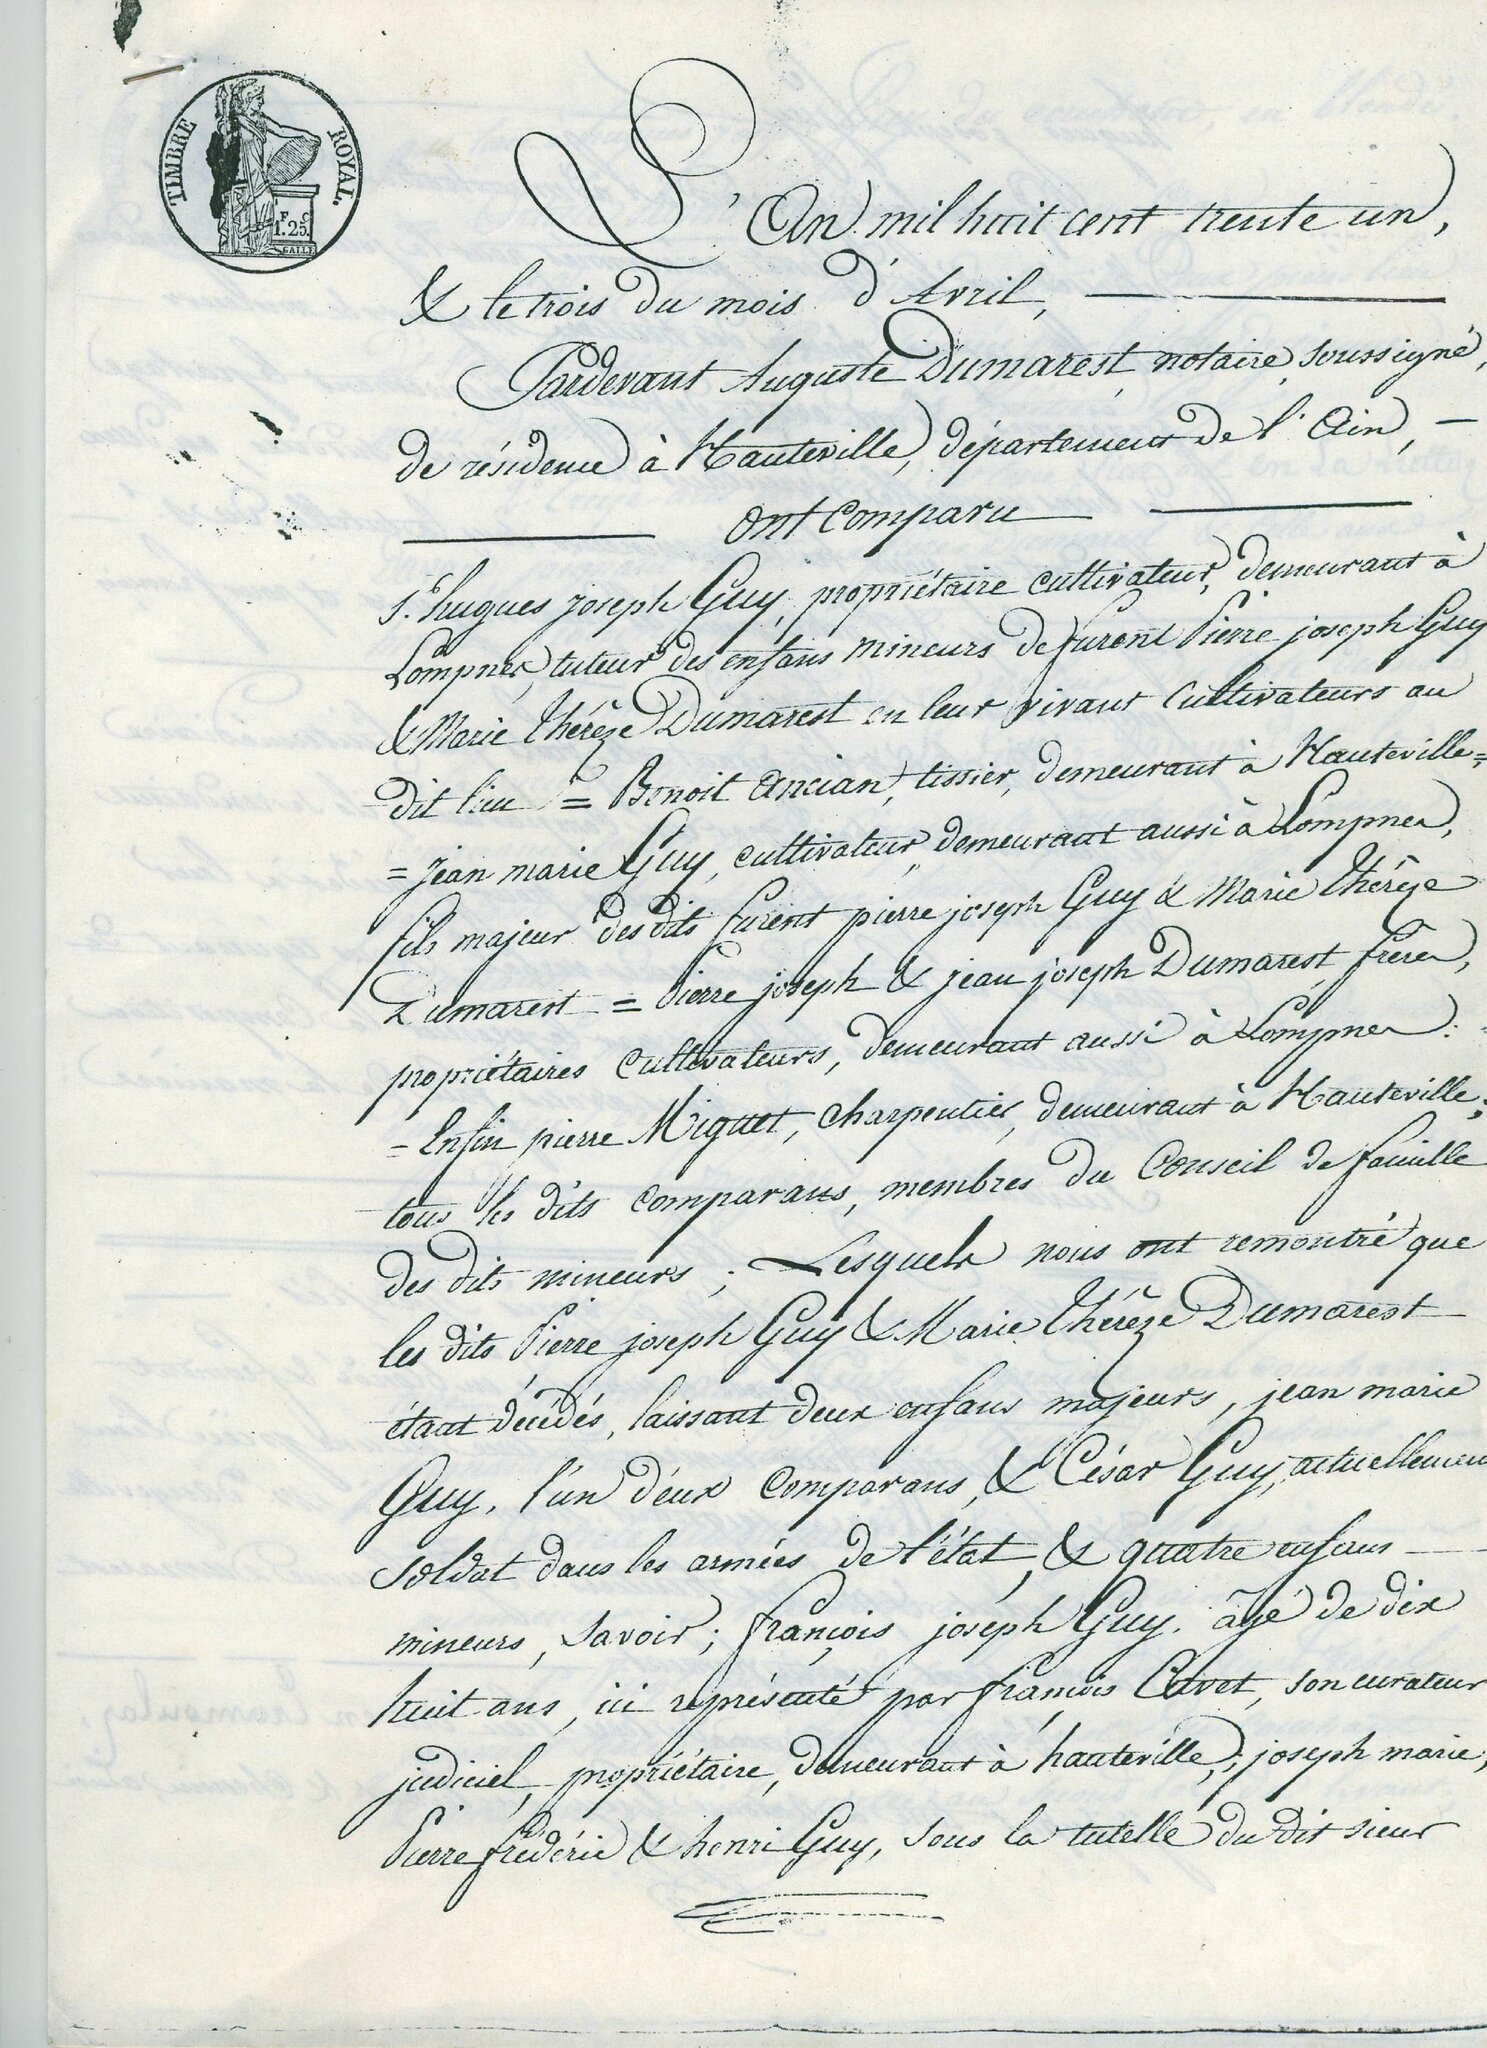 TIMBRE ROYAL.
F. C.
1.25.
GALLE
L'An mil huit cent trente un,
& le trois du mois d'Avril,
Pardevant Auguste Dumarest, notaire soussigné,
de résidence à Hauteville, département de l'Ain, —
ont comparu
S. hugues joseph Guy, propriétaire cultivateur, demeurant à
Lompnes, tuteur des enfans mineurs de furent Pierre joseph Guy
& Marie thérèze Dumarest en leur vivant cultivateurs au
dit lieu = Benoit Ancian, tissier, demeurant à Hauteville =
= jean marie Guy, cultivateur, demeurant aussi à Lompnes,
fils majeur des dits furent pierre joseph Guy & Marie thérèze
Dumarest = Pierre joseph & jean joseph Dumarest frères,
propriétaires cultivateurs, demeurant aussi à Lompnes:
= Enfin pierre Miguet, charpentier, demeurant à Hauteville;
tous les dits comparans, membres du Conseil de famille
des dits mineurs; Lesquels nous ont remontré que
les dits Pierre joseph Guy & Marie thérèze Dumarest
étant décédés, laissant deux enfans majeurs, jean marie
Guy, l'un d'eux comparans, & César Guy, actuellement
soldat dans les armées de l'état, & quatre enfans
mineurs, savoir; françois joseph Guy, âgé de dix
huit ans, ici représenté par françois, son curateur
judiciel, propriétaire, demeurant à hauteville; joseph marie,
Pierre fréderic & henri Guy, sous la tutelle du dit sieur